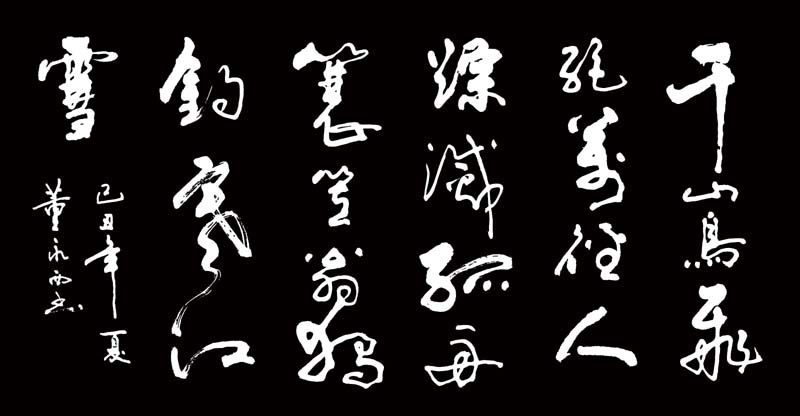 千山鳥飛
絕萬徑人
踪滅孤舟
蓑笠翁獨
釣寒江
雪
己丑年夏
董永西